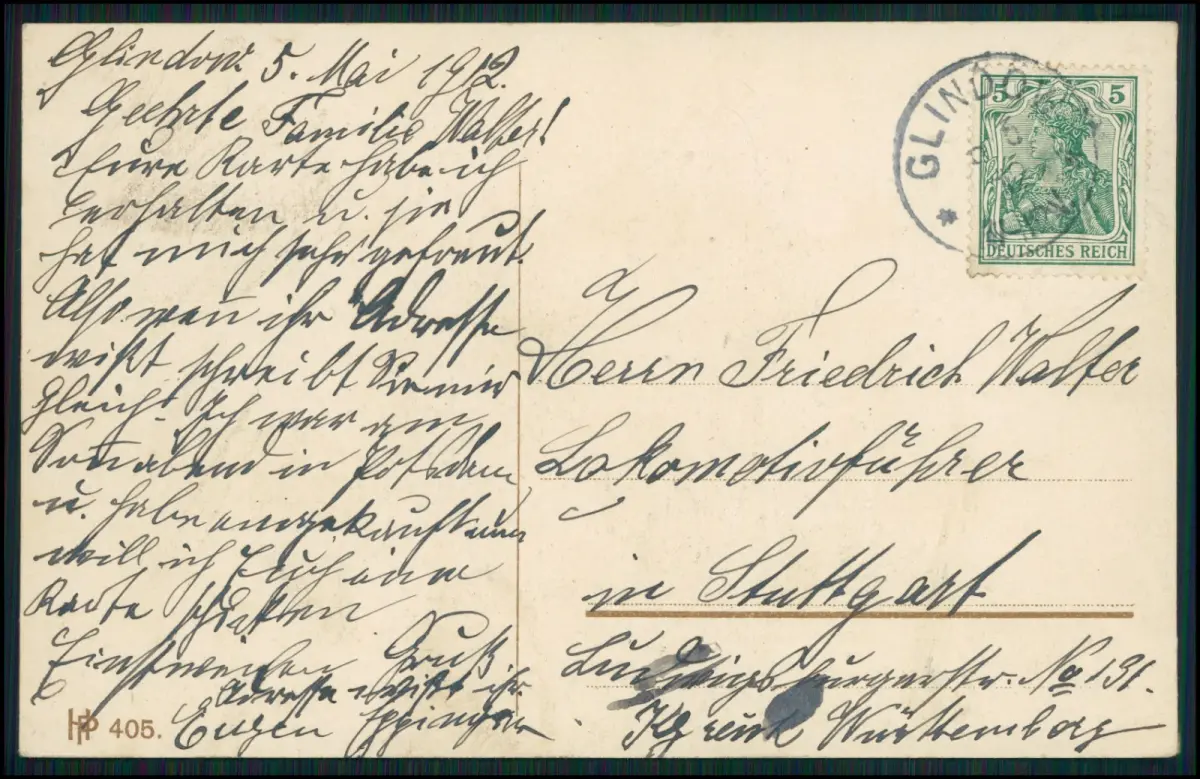 Glindow. 5. Mai 1912.
Geehrte Familie Walter!
Eure Karte habe ich
erhalten u. sie
hat mich sehr gefreut.
Also wen̄ ihr Adresse
wißt schreibt Sie mir
gleich. Ich war am
Son̄abend in Potsdam
u. habe eingekauft nun
will ich Euch eine
Karte schicken
Einstweilen Gruß
Adresse wißt ihr.
Eugen Eppinger
HP 405.
GLINDOW
5 5
DEUTSCHES REICH
Herrn Friedrich Walter
Lokomotivführer
in Stuttgart
Ludwigsburgerstr. No 131.
Kgreich Württemberg